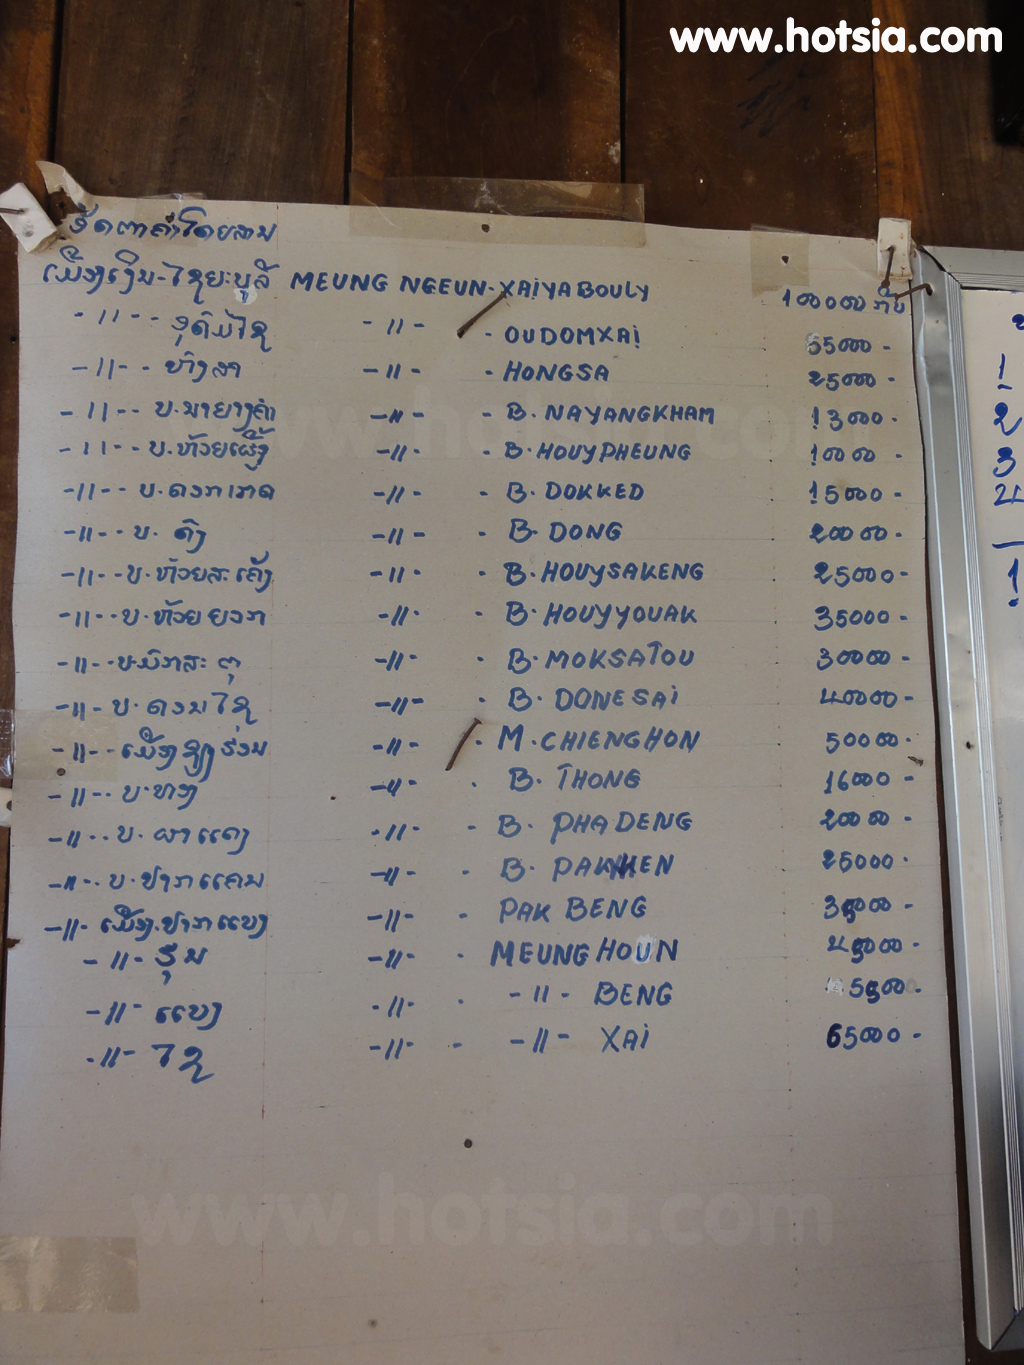 www.hotsia.com
ອັດຕາຄ່າໂດຍສານ
ເມືອງເງິນ-ໄຊຍະບູລີ MEUNG NGEUN-XAiYABOULY 100000 ກີບ
-11-- ອຸດົມໄຊ -11- - OUDOMXAi 55000-
-11-- ຫົງສາ -11- - HONGSA 25000-
-11-- ບ.ນາຍາງຄຳ -11- - B. NAYANGKHAM 13000-
-11-- ບ.ຫ້ວຍເຜິ້ງ -11- - B. HOUYPHEUNG 10000-
-11-- ບ.ດອກເກດ -11- - B. DOKKED 15000-
-11-- ບ. ດົງ -11- - B. DONG 20000-
-11-- ບ.ຫ້ວຍສະເຄັງ -11- - B. HOUYSAKENG 25000-
-11-- ບ.ຫ້ວຍຍວກ -11- - B. HOUYYOUAK 35000-
-11-- ບ.ມົກສະຕຸ -11- - B. MOKSATOU 30000-
-11- ບ.ດອນໄຊ -11- - B. DONESAi 40000-
-11-- ເມືອງຊຽງຮ່ອນ -11- - M. CHIENGHON 50000-
-11-- ບ.ທົງ -11- - B. THONG 16000-
-11-- ບ. ຜາແດງ -11- - B. PHADENG 20000-
-11-- ບ.ປາກແຄນ -11- - B. PAKKHEN 25000-
-11- ເມືອງ.ປາກແບງ -11- - PAK BENG 35000-
-11- ຮຸນ -11- - MEUNG HOUN 45000-
-11- ແບງ -11- - -11- BENG 55000-
-11- ໄຊ -11- - -11- XAi 65000-
1
2
3
1
www.hotsia.com